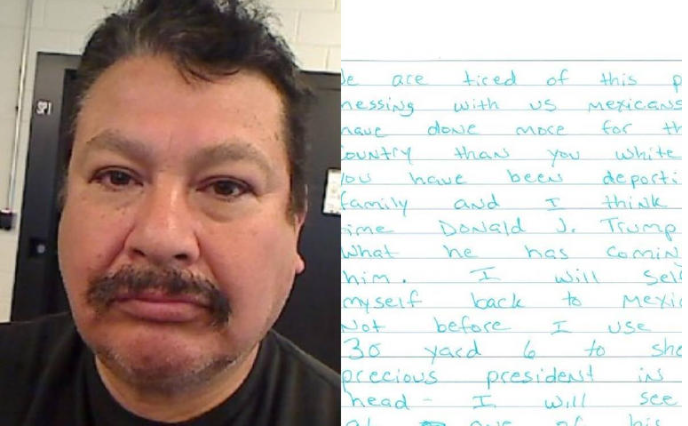 SPI
We are tired of this p
messing with us mexicans
have done more for th
country than you white
you have been deporti
family and I think
time Donald J. Trump
what he has coming
him. I will self
myself back to Mexic
Not before I use
30 yard 6 to sho
precious president in
head - I will see
at one of his